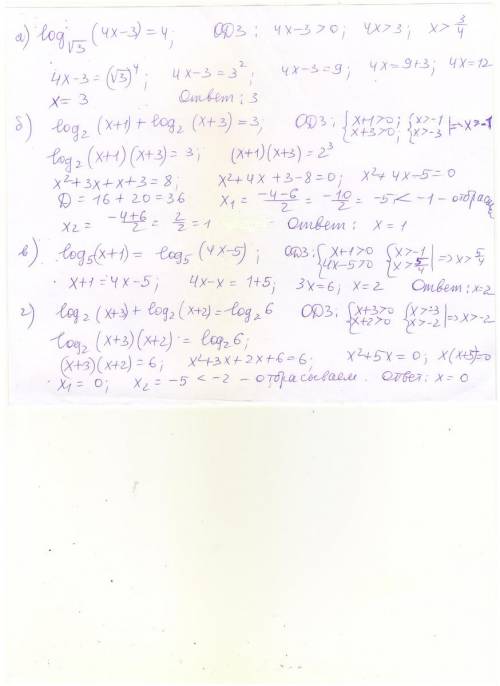 а) log√3 (4x-3) = 4; ОДЗ: 4x-3>0; 4x>3; x> 3/4
4x-3 = (√3)⁴; 4x-3 = 3²; 4x-3=9; 4x=9+3; 4x=12
x= 3 Ответ: 3
б) log₂ (x+1) + log₂ (x+3) = 3; ОДЗ: {x+1>0; x+3>0; {x>-1 x>-3 |=>x>-1
log₂ (x+1)(x+3) = 3; (x+1)(x+3) = 2³
x²+3x+x+3=8; x²+4x+3-8=0; x²+4x-5=0
D = 16 + 20 = 36 x₁ = -4-6/2 = -10/2 = -5 < -1 - отбрас
x₂ = -4+6/2 = 2/2 = 1 Ответ: x = 1
в) log₅(x+1) = log₅ (4x-5); ОДЗ: {x+1>0 4x-5>0 {x>-1 x>5/4 |=> x>5/4
x+1=4x-5; 4x-x=1+5; 3x=6; x=2 Ответ: x=2
г) log₂ (x+3) + log₂ (x+2) = log₂ 6 ОДЗ: {x+3>0 x+2>0 {x>-3 x>-2 |=>x>-2
log₂ (x+3)(x+2) = log₂ 6;
(x+3)(x+2) = 6; x²+3x+2x+6=6; x²+5x=0; x(x+5)=0
x₁ = 0; x₂ = -5 < -2 - отбрасываем. Ответ: x = 0